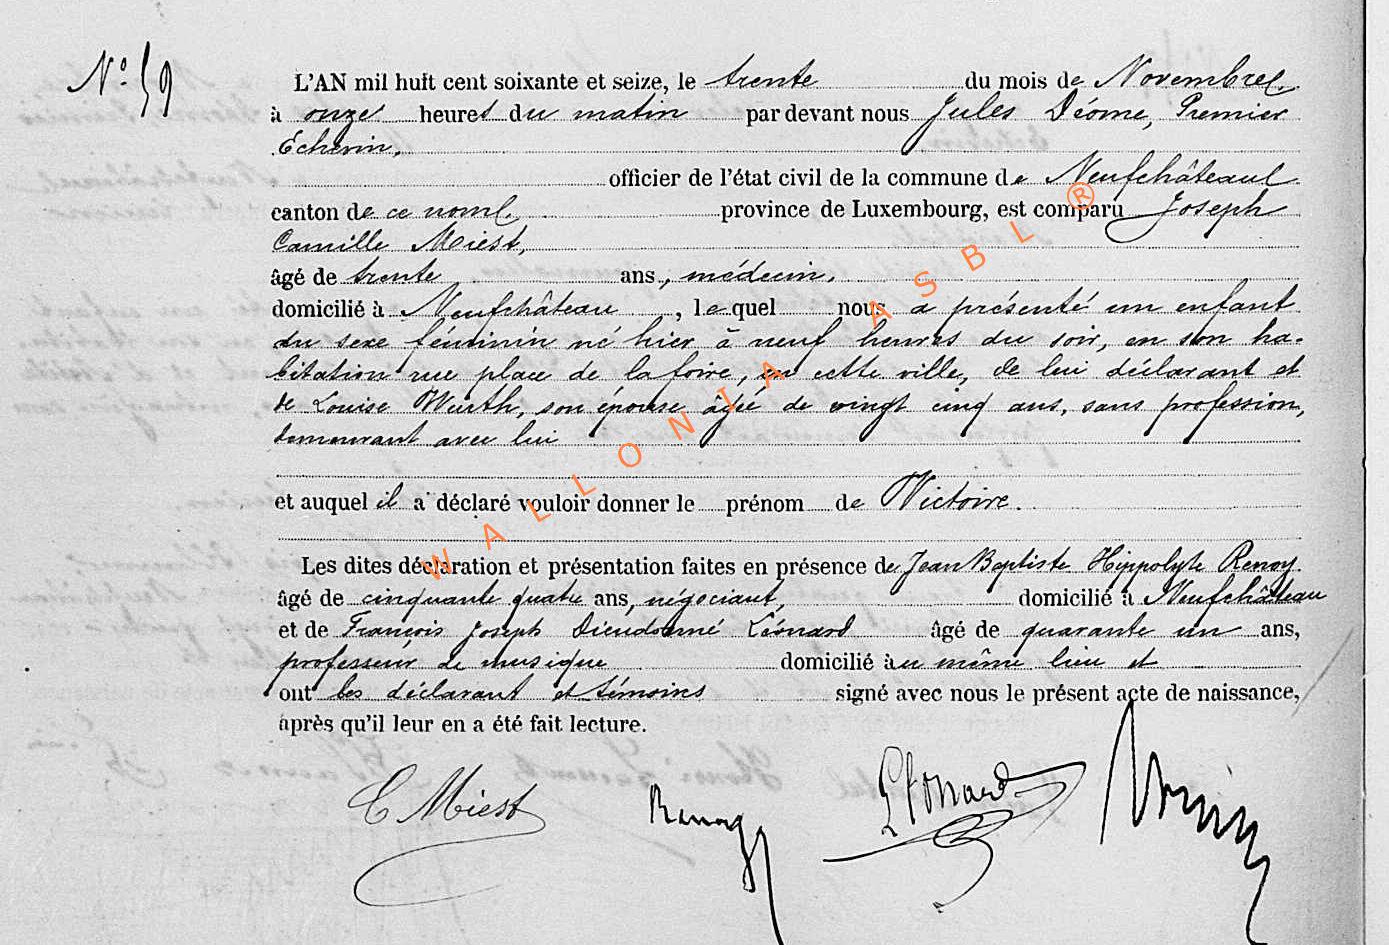 N° 59
L'AN mil huit cent soixante et seize, le trente du mois de Novembre
à onze heures du matin par devant nous Jules Déome, Premier
Echevin,
officier de l'état civil de la commune de Neufchâteau
canton de ce nom, province de Luxembourg, est comparu Joseph
Camille Miest,
âgé de trente ans, médecin,
domicilié à Neufchâteau, lequel nous a présenté un enfant
du sexe féminin né hier à neuf heures du soir, en son ha-
bitation rue place de la foire, en cette ville, de lui déclarant et
de Louise Wurth, son épouse âgée de vingt cinq ans, sans profession,
demeurant avec lui
et auquel il a déclaré vouloir donner le prénom de Victoire.
Les dites déclaration et présentation faites en présence de Jean Baptiste Hippolyte Renoy,
âgé de cinquante quatre ans, négociant, domicilié à Neufchâteau
et de François Joseph Dieudonné Léonard âgé de quarante un ans,
professeur de musique domicilié au même lieu et
ont les déclarant et témoins signé avec nous le présent acte de naissance,
après qu'il leur en a été fait lecture.
C Miest Renoy Léonard
WALLONIA ASBL ®